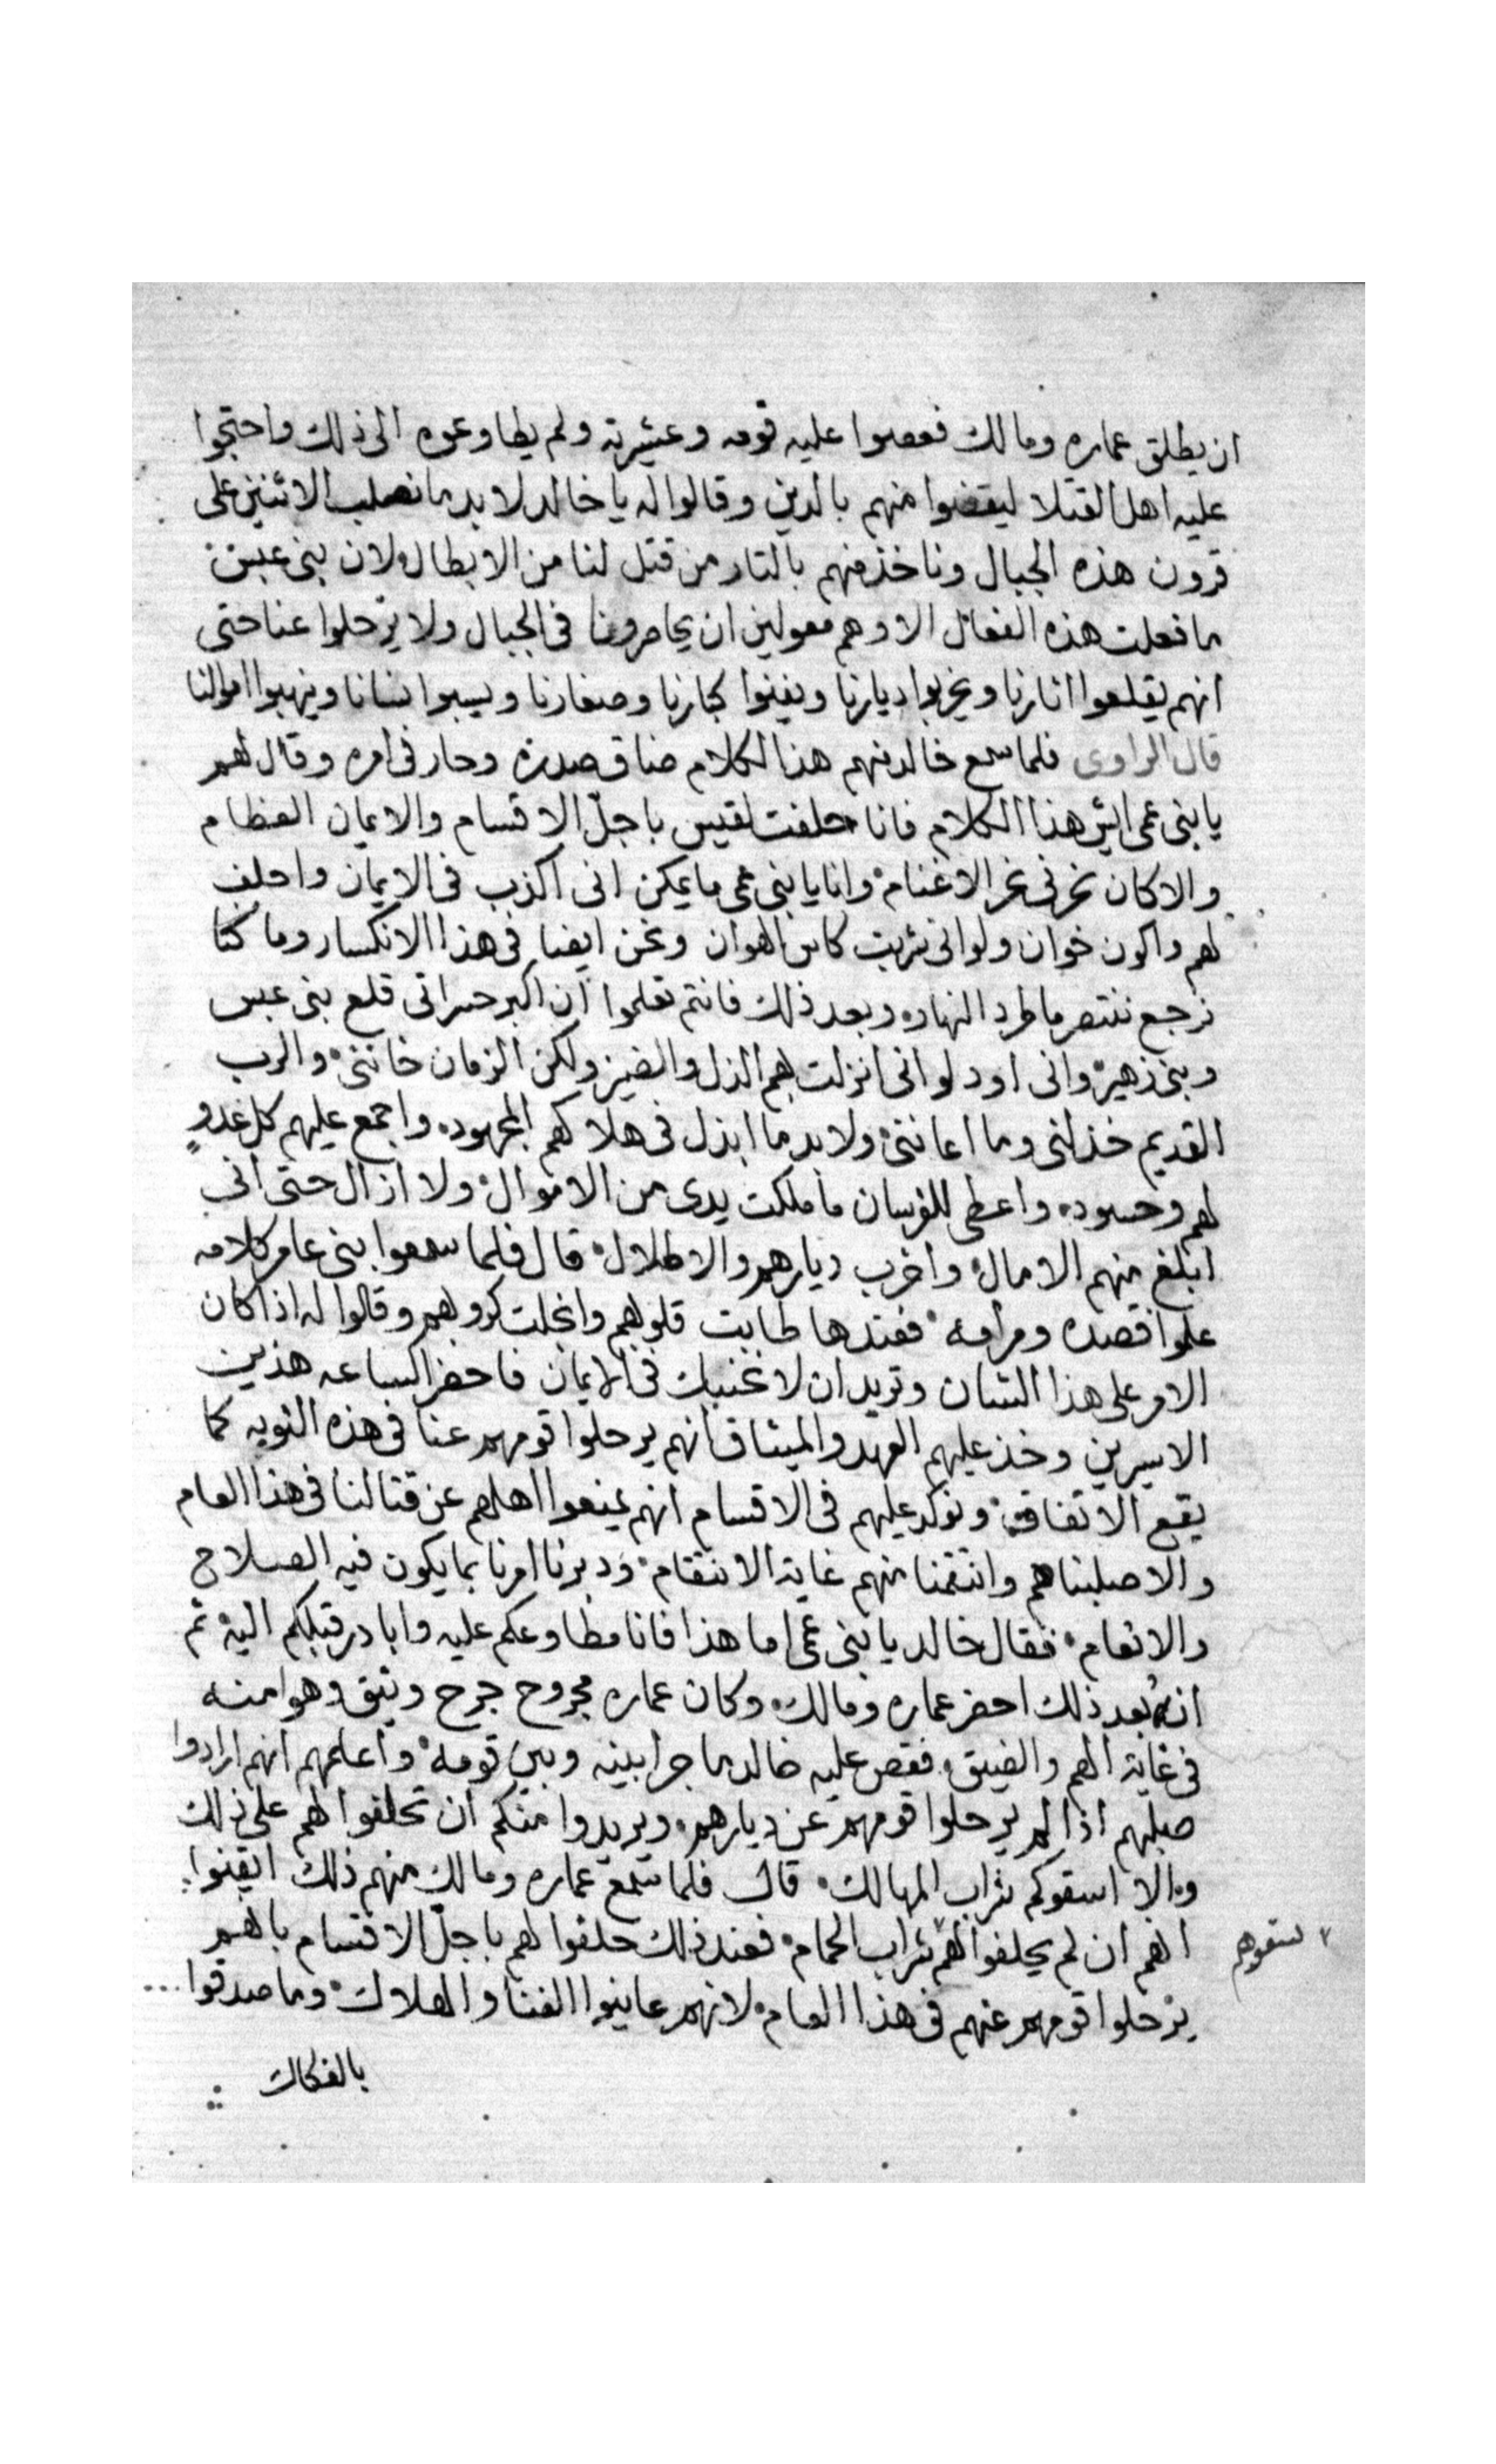 ان يطلق عماره ومالك فعصوا عليه قومه وعشيرته ولم يطاوعوه الى ذلك واحتجوا
عليه اهل القتلا ليقضوا منهم بالدين وقالوا له يا خالد لا بد ما نصلب الاثنين على
قرون هذه الجبال وناخذ منهم بالتار من قتل لنا من الابطال لان بنى عبس
ما فعلت هذه الفعال الا وهم معولين ان يحاصرونا فى الجبال ولا يرحلوا عنا حتى
انهم يقلعوا اثارنا ويخربوا ديارنا ويفنوا كبارنا وصغارنا ويسبوا نسانا وينهبوا اموالنا
قال الراوى فلما سمع خالد منهم هذا الكلام ضاق صدره وحار فى امره وقال لهم
يا بنى عمى ايش هذا الكلام فانا حلفت لقيس باجلّ الاقسام والايمان العظام
والا كان نحرنى نحر الاغنام وانا يا بنى عمى ما يمكن انى اكذب فى الايمان واحلف
لهم واكون خوان ولو انى شربت كاس الهوان ونحن ايضا فى هذا الانكسار وما كنا
نرجع ننتصر ما طرد النهار وبعد ذلك فانتم تعلموا ان اكبر حسراتى قلع بنى عبس
وبنى زهير وانى اود لو انى انزلت بهم الذل والضير ولكن الزمان خاننى والرب
القديم خذلنى وما اعاننى ولا بد ما ابذل فى هلاكهم المجهود واجمع عليهم كل عدوٍ
لهم وحسود واعطى للفرسان ما ملكت يدى من الاموال ولا ازال حتى انى
ابلغ منهم الامال واخرب ديارهم والاطلال قال فلما سمعوا بنى عامر كلامه
علموا قصده ومرامه فعندها طابت قلوبهم وانجلت كروبهم وقالوا له اذا كان
الامر على هذا الشان وتريد ان لا نخيبك فى الايمان فاحضر الساعه هذين
الاسيرين وخذ عليهم العهد والميثاق انهم يرحلوا قومهم عنا فى هذه النوبه كما
يقع الاتفاق ونوكد عليهم فى الاقسام انهم يمنعوا اهلهم عن قتالنا فى هذا العام
والا صلبناهم وانتقمنا منهم غاية الانتقام ودبرنا امرنا بما يكون فيه الصلاح
والانعام فقال خالد يا بنى عمى اما هذا فانا مطاوعكم عليه وابادر قبلكم اليه ثم
انه بعد ذلك احضر عماره ومالك وكان عماره مجروح جرح وثيق وهو منه
فى غاية الهم والضيق فقص عليه خالد ما جرا بينه وبين قومه واعلمهم انهم ارادوا
صلبهم اذا لم يرحلوا قومهم عن ديارهم ويريدوا منكم ان تحلفوا لهم على ذلك
والا اسقوكم شراب المهالك قال فلما سمع عماره ومالك منهم ذلك ايقنوا
انهم ان لم يحلفوا لهم شراب الحمام فعند ذلك حلفوا لهم باجلّ الاقسام بانهم
يسقوهم
يرحلوا قومهم عنهم فى هذا العام لانهم عاينوا الفنا والهلاك وما صدقوا
بالفكاك